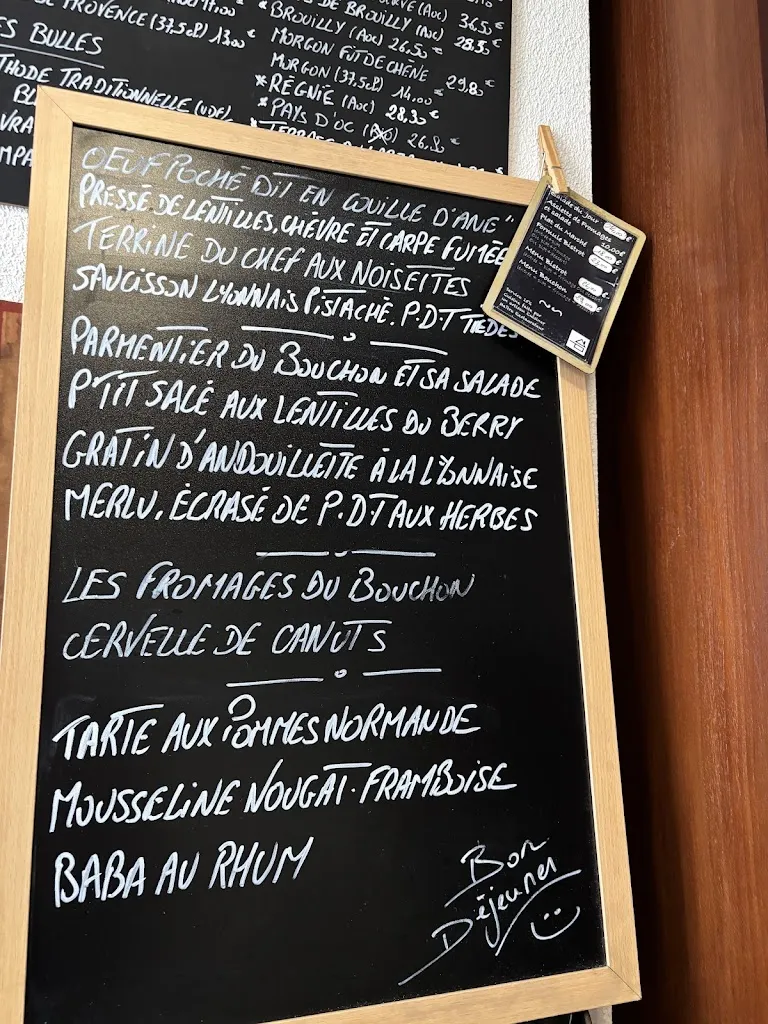 PROVENCE (37,5cl) 13,00€
BULLES
BROUILLY (AOC) 26,50€
DE BROUILLY (AOC) 28,50€
36,50€
MORGON FUT DE CHÊNE 29,80€
MORGON (37,5cl) 14,00€
*RÉGNIÉ (AOC) 28,30€
*PAYS D'OC 26,80€
TRADITIONNELLE
OEUF POCHÉ DIT EN COUILLE D'ANE"
PRESSÉ DE LENTILLES, CHÈVRE ET CARPE FUMÉE
TERRINE DU CHEF AUX NOISETTES
SAUCISSON LYONNAIS PISTACHÉ. P.D.T TIEDES
PARMENTIER DU BOUCHON ET SA SALADE
P'TIT SALÉ AUX LENTILLES DU BERRY
GRATIN D'ANDOUILLETTE À LA LYONNAISE
MERLU, ÉCRASÉ DE P.D.T AUX HERBES
LES FROMAGES DU BOUCHON
CERVELLE DE CANUTS
TARTE AUX POMMES NORMANDE
MOUSSELINE NOUGAT. FRAMBOISE
BABA AU RHUM
Bon
Déjeuner
du jour
Assiette de Fromages
et salade
Plat du Marché
Formule Bistrot
Menu Bistrot
Menu Bouchon